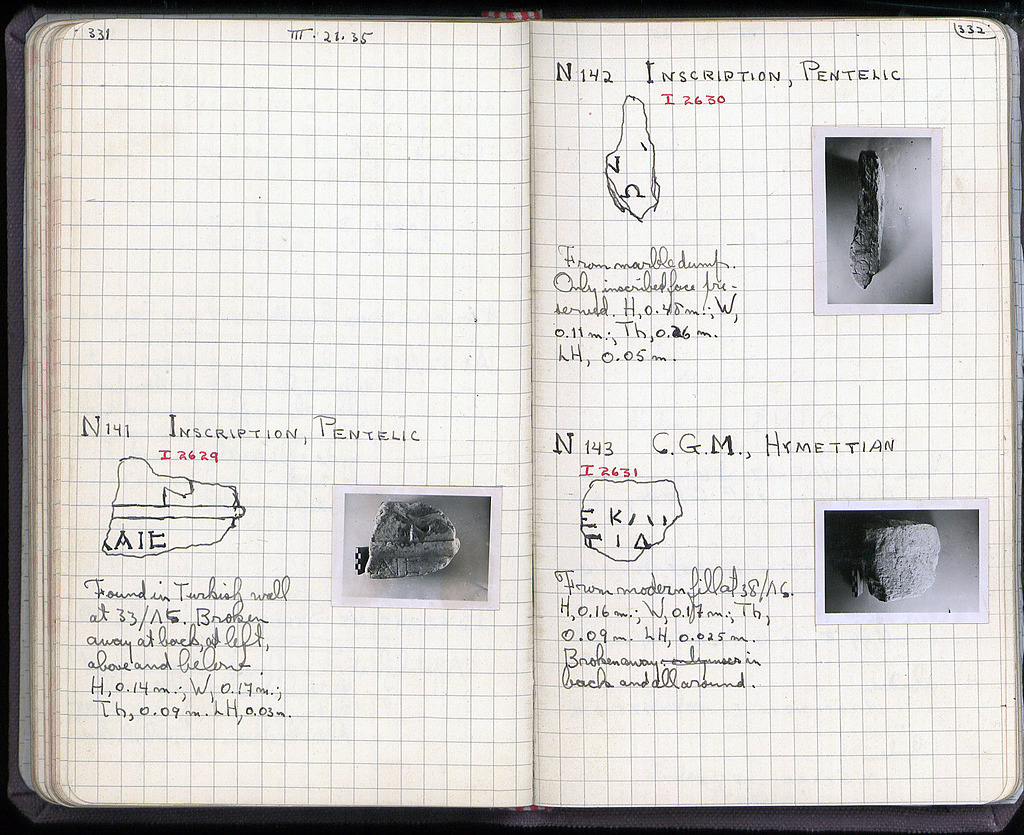 331
III · 21 · 35
N 141 INSCRIPTION, PENTELIC
I 2629
ΑΙΕ
Found in Turkish wall
at 33/ΛΕ. Broken
away at back, at left,
above and below.
H, 0.14 m.; W, 0.17 m.;
Th, 0.09 m. LH, 0.03 m.
332
N 142 INSCRIPTION, PENTELIC
I 2630
From marble dump.
Only inscribed face pre-
served. H, 0.48 m.; W,
0.11 m.; Th, 0.26 m.
LH, 0.05 m.
N 143 C.G.M., HYMETTIAN
I 2631
Ε Κ
Γ Ι Δ
From modern fill at 38/ΛϚ.
H, 0.16 m.; W, 0.17 m.; Th,
0.09 m. LH, 0.025 m.
Broken away in
back and all around.